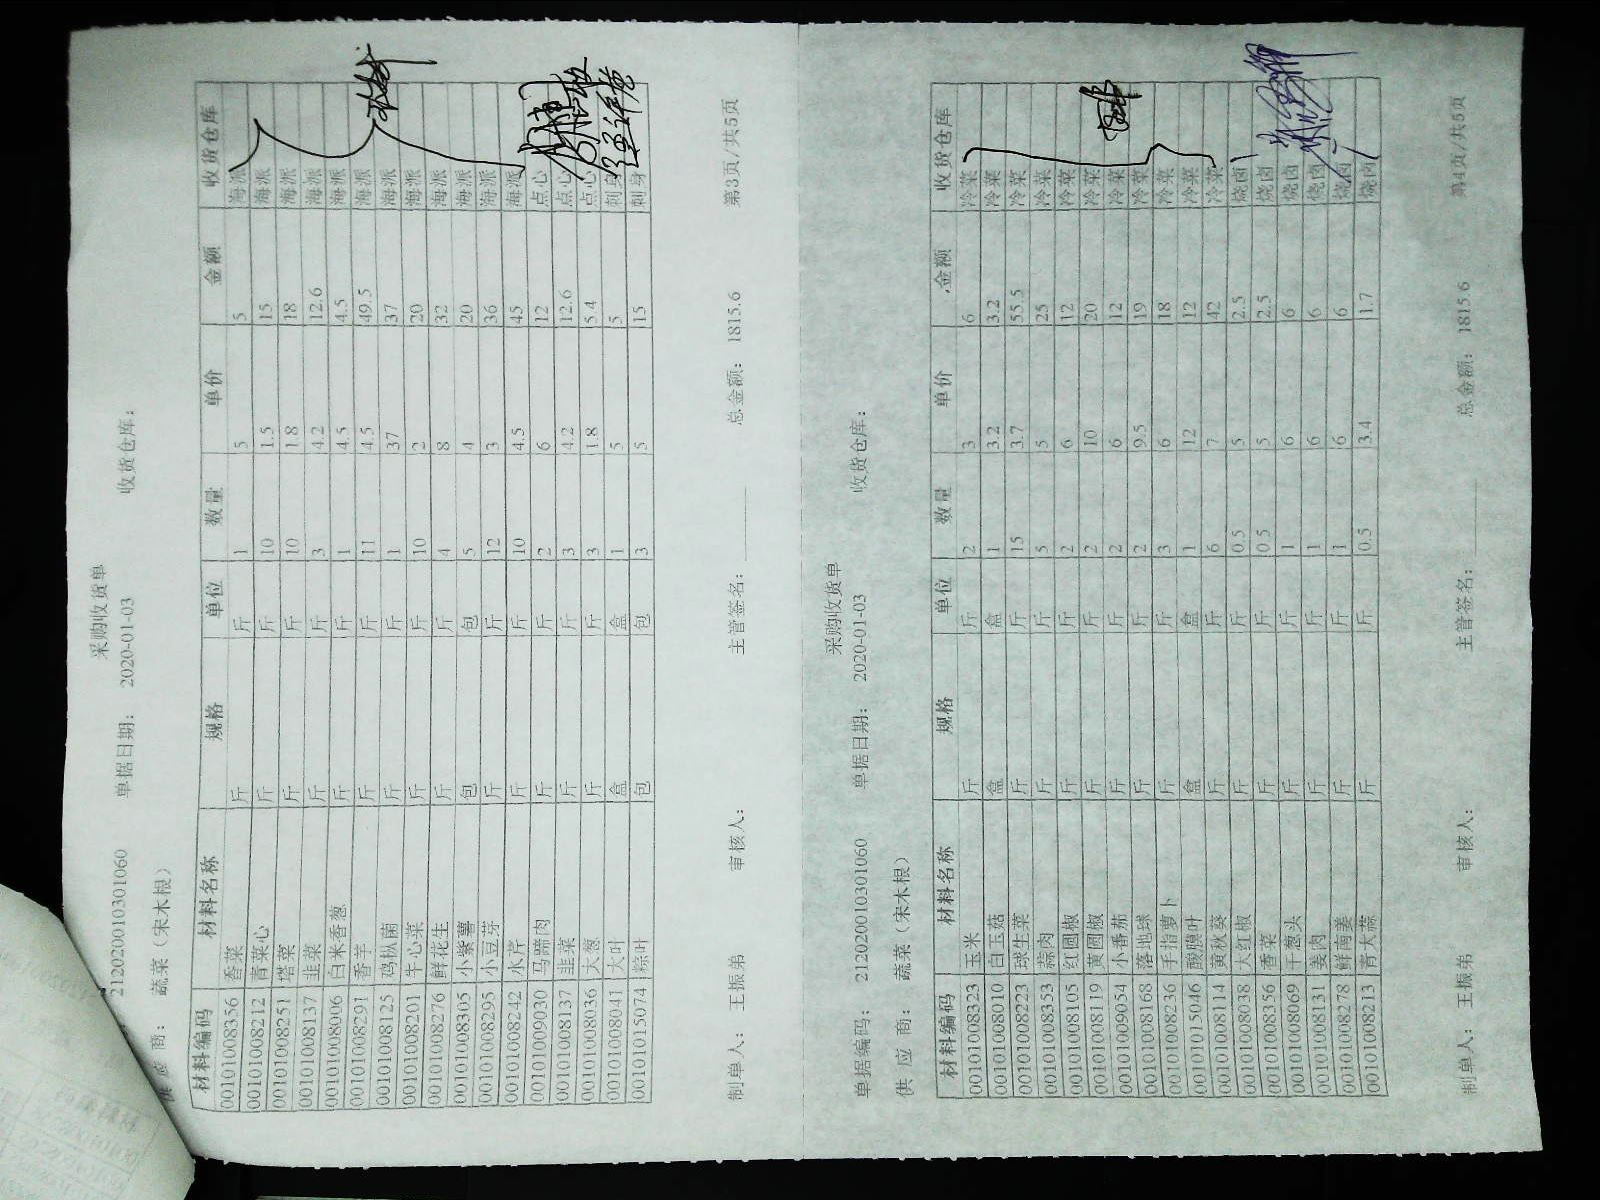 采购收货单
212020010301060 单据日期： 2020-01-03 收货仓库：
供 应 商： 蔬菜（宋木根）
材料编码 材料名称 规格 单位 数量 单价 金额 收货仓库
00101008356 香菜 斤 斤 1 5 5 海派
00101008212 青菜心 斤 斤 10 1.5 15 海派
00101008251 塔菜 斤 斤 10 1.8 18 海派
00101008137 韭菜 斤 斤 3 4.2 12.6 海派
00101008006 白米香葱 斤 斤 1 4.5 4.5 海派
00101008291 香芋 斤 斤 11 4.5 49.5 海派
00101008125 鸡枞菌 斤 斤 1 37 37 海派
00101008201 牛心菜 斤 斤 10 2 20 海派
00101008276 鲜花生 斤 斤 4 8 32 海派
00101008305 小紫薯 包 包 5 4 20 海派
00101008295 小豆芽 斤 斤 12 3 36 海派
00101008242 水芹 斤 斤 10 4.5 45 海派
00101009030 马蹄肉 斤 斤 2 6 12 点心
00101008137 韭菜 斤 斤 3 4.2 12.6 点心
00101008036 大葱 斤 斤 3 1.8 5.4 点心
00101008041 大叶 盒 盒 1 5 5 刺身
00101015074 粽叶 包 包 3 5 15 刺身
制单人： 王振弟 审核人： 主管签名： 总金额： 1815.6 第3页/共5页
采购收货单
单据编码： 212020010301060 单据日期： 2020-01-03 收货仓库：
供 应 商： 蔬菜（宋木根）
材料编码 材料名称 规格 单位 数量 单价 金额 收货仓库
00101008323 玉米 斤 斤 2 3 6 冷菜
00101008010 白玉菇 盒 盒 1 3.2 3.2 冷菜
00101008223 球生菜 斤 斤 15 3.7 55.5 冷菜
00101008353 蒜肉 斤 斤 5 5 25 冷菜
00101008105 红圆椒 斤 斤 2 6 12 冷菜
00101008119 黄圆椒 斤 斤 2 10 20 冷菜
00101009054 小番茄 斤 斤 2 6 12 冷菜
00101008168 落地球 斤 斤 2 9.5 19 冷菜
00101008236 手指萝卜 斤 斤 3 6 18 冷菜
00101015046 酸膜叶 盒 盒 1 12 12 冷菜
00101008114 黄秋葵 斤 斤 6 7 42 冷菜
00101008038 大红椒 斤 斤 0.5 5 2.5 烧卤
00101008356 香菜 斤 斤 0.5 5 2.5 烧卤
00101008069 干葱头 斤 斤 1 6 6 烧卤
00101008131 姜肉 斤 斤 1 6 6 烧卤
00101008278 鲜南姜 斤 斤 1 6 6 烧卤
00101008213 青大蒜 斤 斤 0.5 3.4 1.7 烧卤
制单人： 王振弟 审核人： 主管签名： 总金额： 1815.6 第4页/共5页